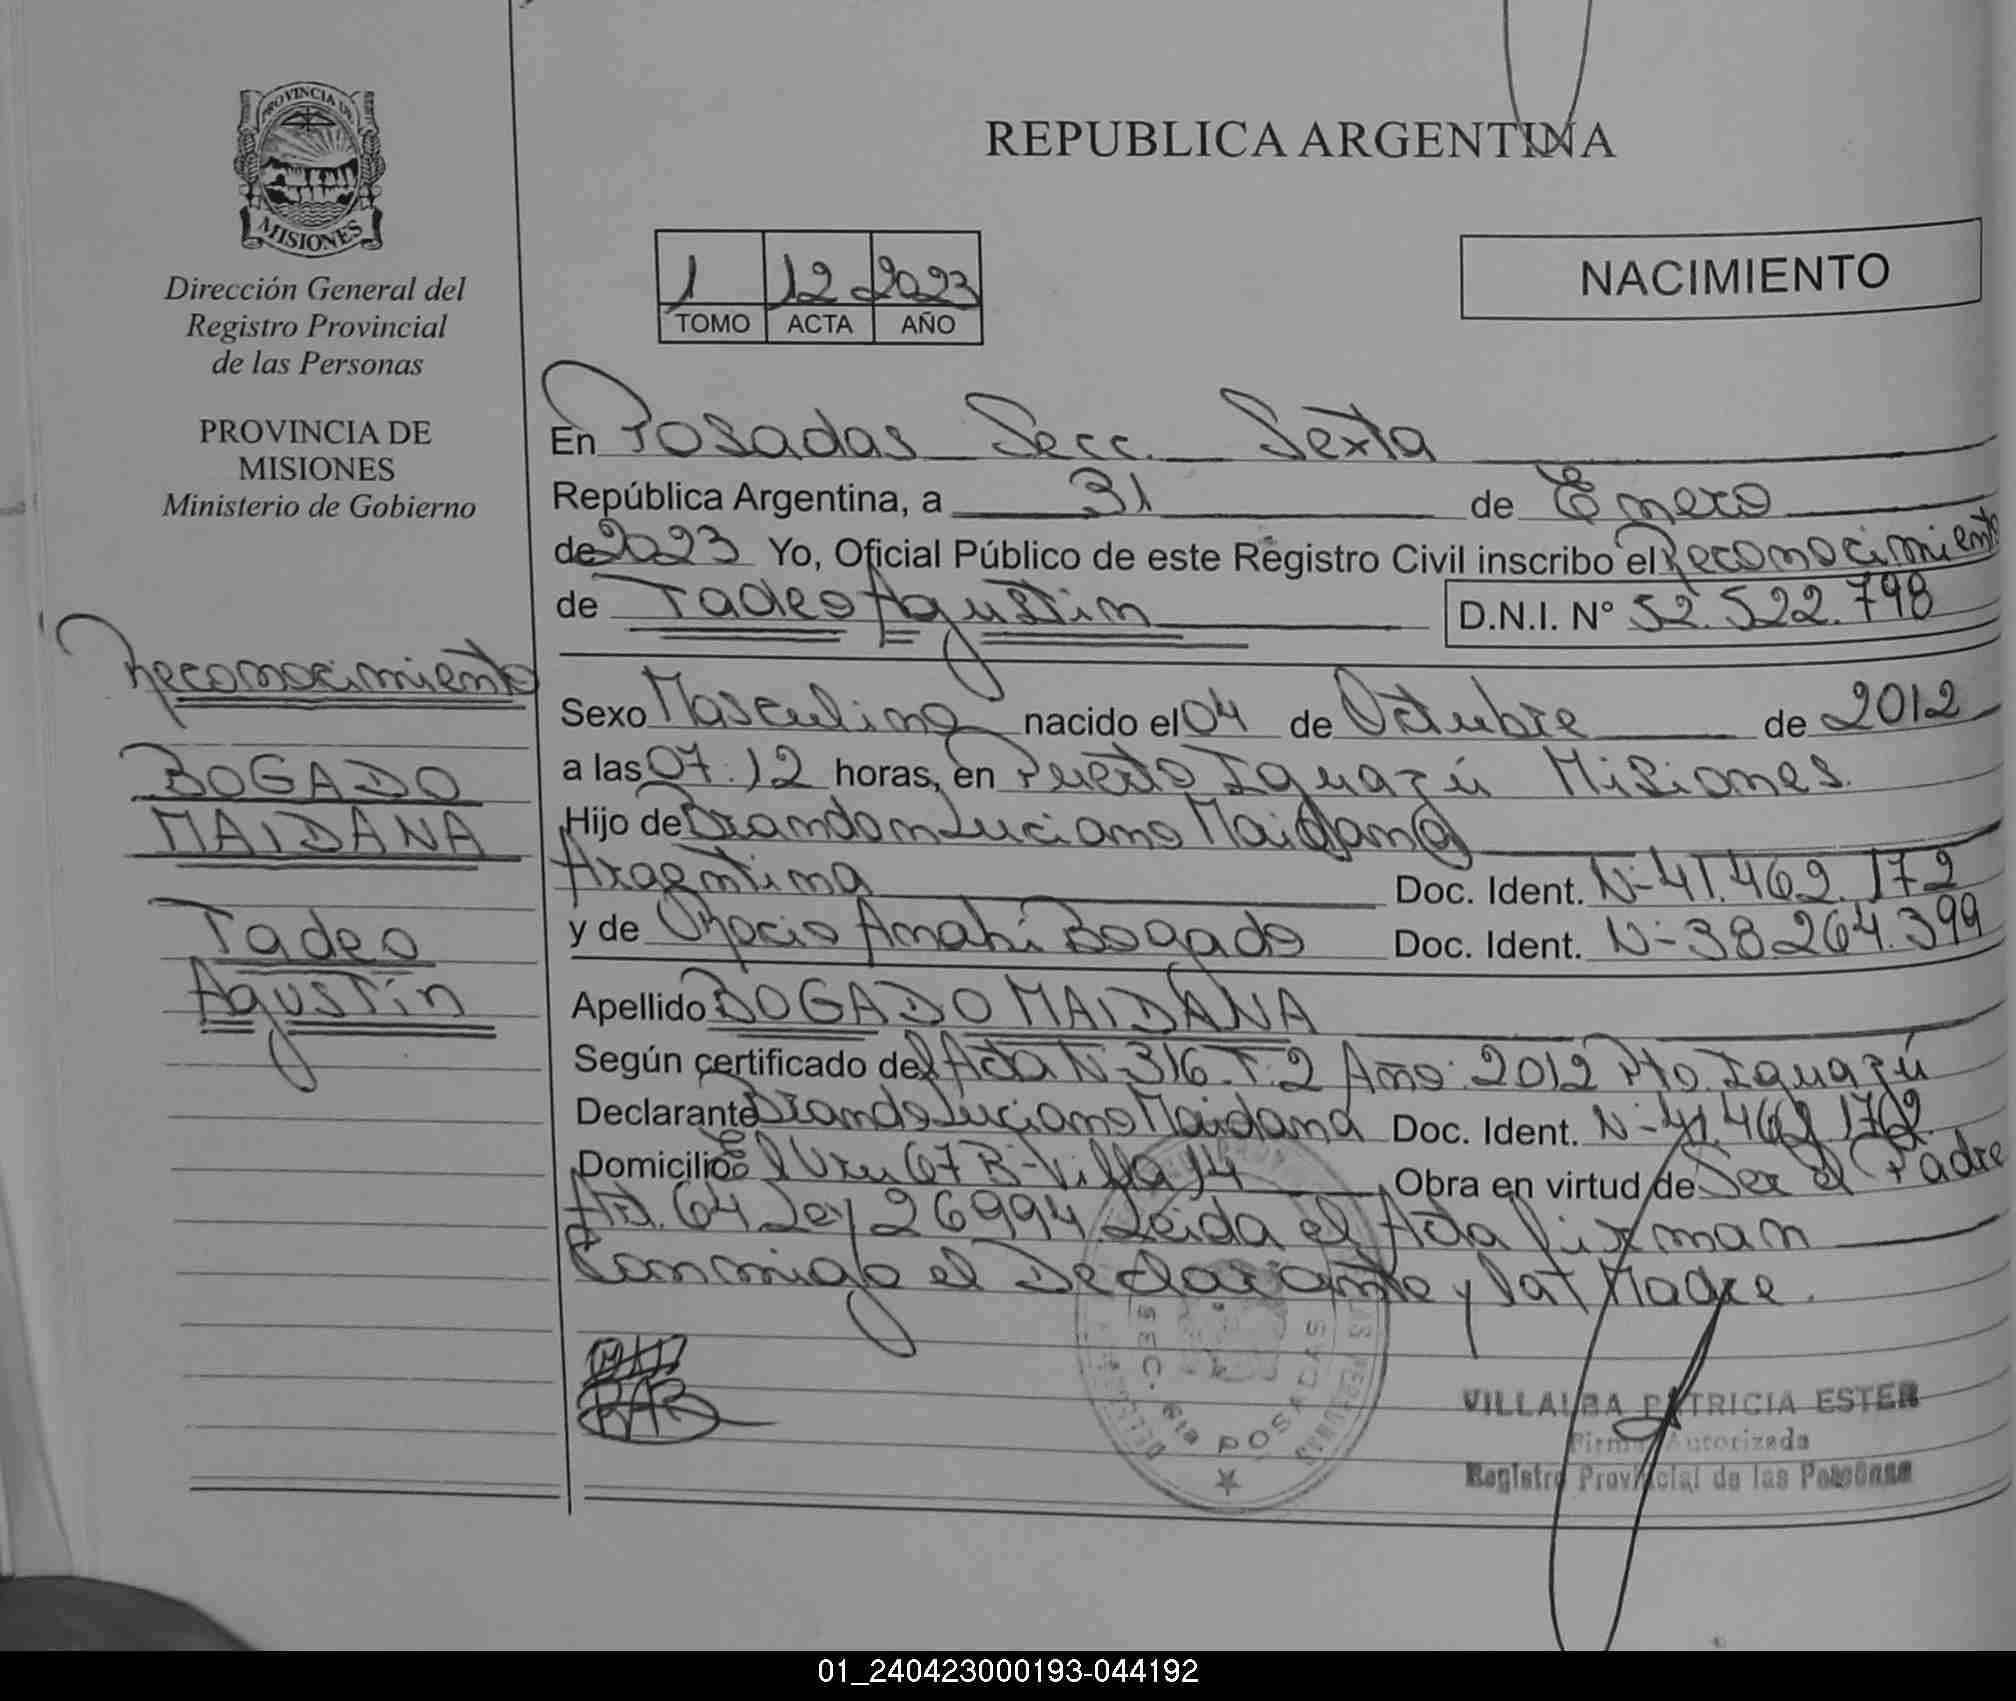 PROVINCIA DE
MISIONES
Dirección General del
Registro Provincial
de las Personas
PROVINCIA DE
MISIONES
Ministerio de Gobierno
Reconocimiento
BOGADO
MAIDANA
Tadeo
Agustín
REPUBLICA ARGENTINA
1 12 2023
TOMO ACTA AÑO
NACIMIENTO
En Posadas Secc. Sexta
República Argentina, a 31 de Enero
de 2023 Yo, Oficial Público de este Registro Civil inscribo el Reconocimiento
de Tadeo Agustin D.N.I. N° 52.522.798
Sexo Masculino nacido el 04 de Octubre de 2012
a las 07:12 horas, en Puerto Iguazú Misiones.
Hijo de Brandon Luciano Maidana
Argentina Doc. Ident. N- 41.462.172
y de Rocio Anahí Bogado Doc. Ident. N- 38264.399
Apellido BOGADO MAIDANA
Según certificado del Acta N- 316 T: 2 Año: 2012 Pto. Iguazú
Declarante Brando Luciano Maidana Doc. Ident. N- 41.462.172
Domicilio El Uru 67 B- Villa 14 Obra en virtud de Ser el Padre
Art. 64 Ley 26994 Leida el Acta Firman
Conmigo el Declarante y la Madre.
RAB
SEC. 6ta POSADAS
VILLALBA PATRICIA ESTER
Firma Autorizada
Registro Provincial de las Personas
01_240423000193-044192